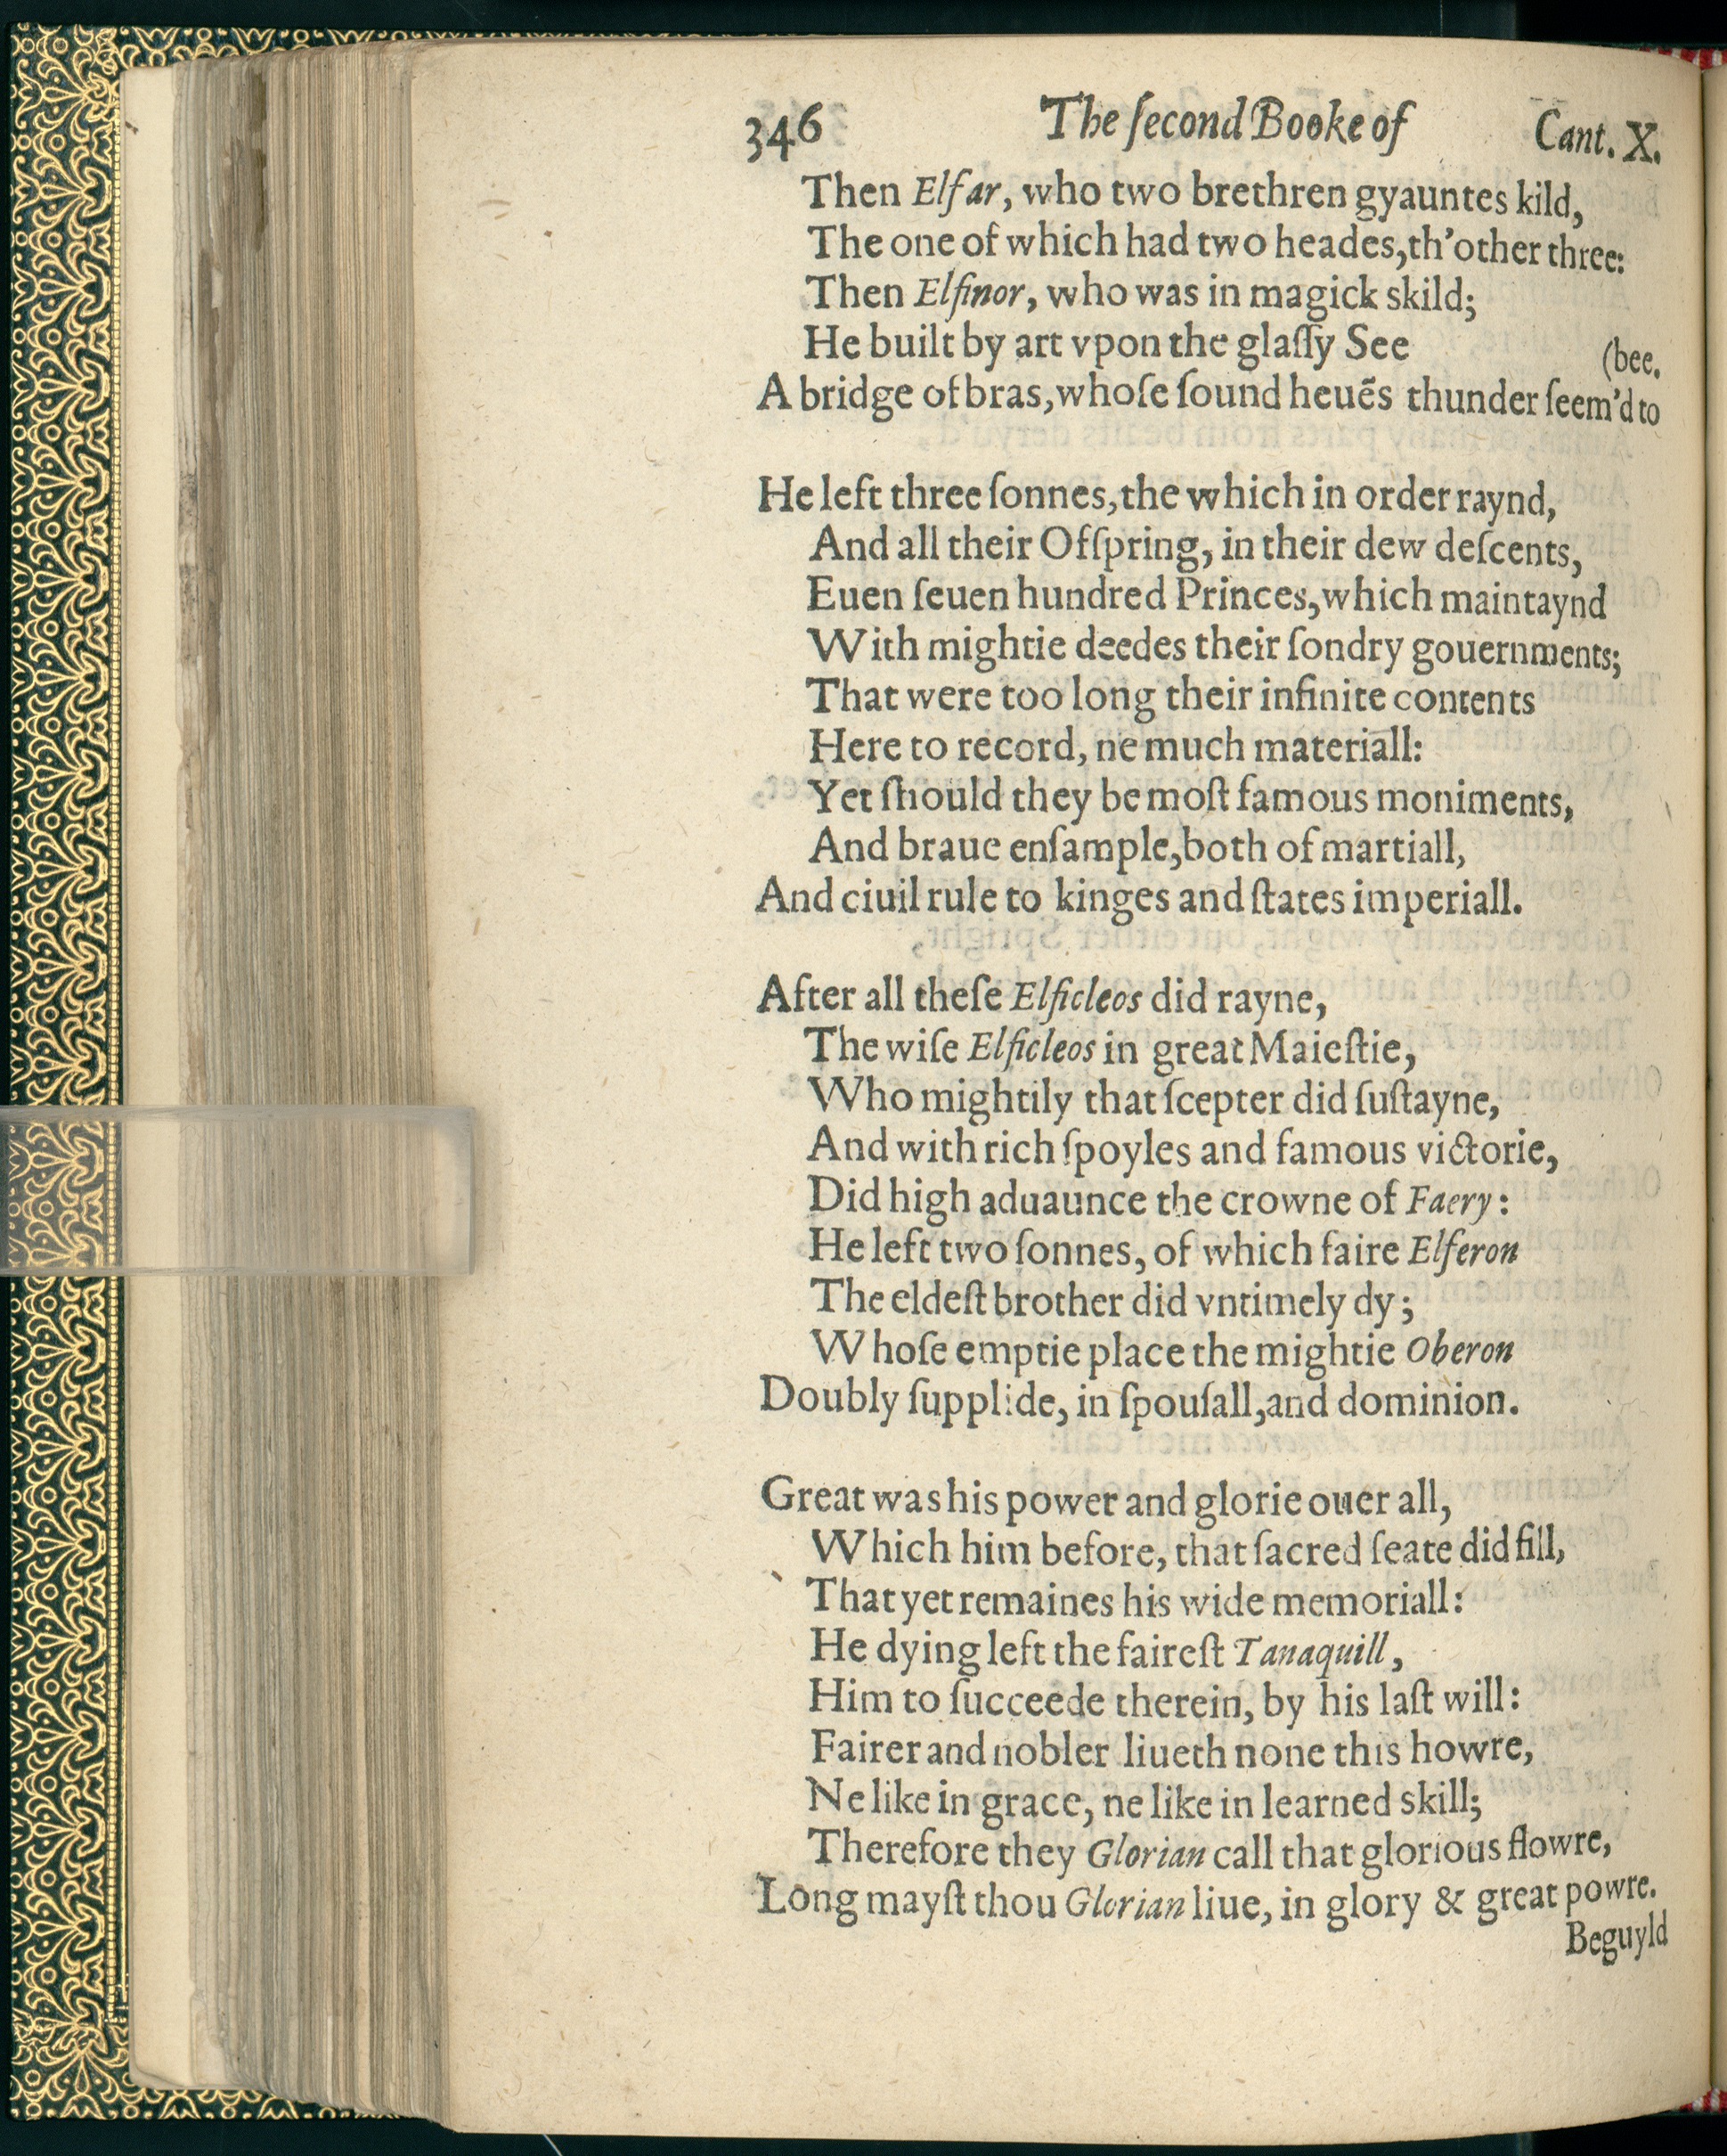 346 The ſecond Booke of Cant. X.
Then Elfar, who two brethren gyauntes kild,
The one of which had two heades, th'other three:
Then Elfinor, who was in magick skild;
He built by art vpon the glaſſy See (bee.
A bridge of bras, whoſe ſound heuẽs thunder ſeem'd to
He left three ſonnes, the which in order raynd,
And all their Ofſpring, in their dew deſcents,
Euen ſeuen hundred Princes, which maintaynd
With mightie deedes their ſondry gouernments;
That were too long their infinite contents
Here to record, ne much materiall:
Yet ſhould they be moſt famous moniments,
And braue enſample, both of martiall,
And ciuil rule to kinges and ſtates imperiall.
After all theſe Elficleos did rayne,
The wiſe Elficleos in great Maieſtie,
Who mightily that ſcepter did ſuſtayne,
And with rich ſpoyles and famous victorie,
Did high aduaunce the crowne of Faery:
He left two ſonnes, of which faire Elferon
The eldeſt brother did vntimely dy;
Whoſe emptie place the mightie Oberon
Doubly ſupplide, in ſpouſall, and dominion.
Great was his power and glorie ouer all,
Which him before, that ſacred ſeate did fill,
That yet remaines his wide memoriall:
He dying left the faireſt Tanaquill,
Him to ſucceede therein, by his laſt will:
Fairer and nobler liueth none this howre,
Ne like in grace, ne like in learned skill;
Therefore they Glorian call that glorious flowre,
Long mayſt thou Glorian liue, in glory & great powre.
Beguyld